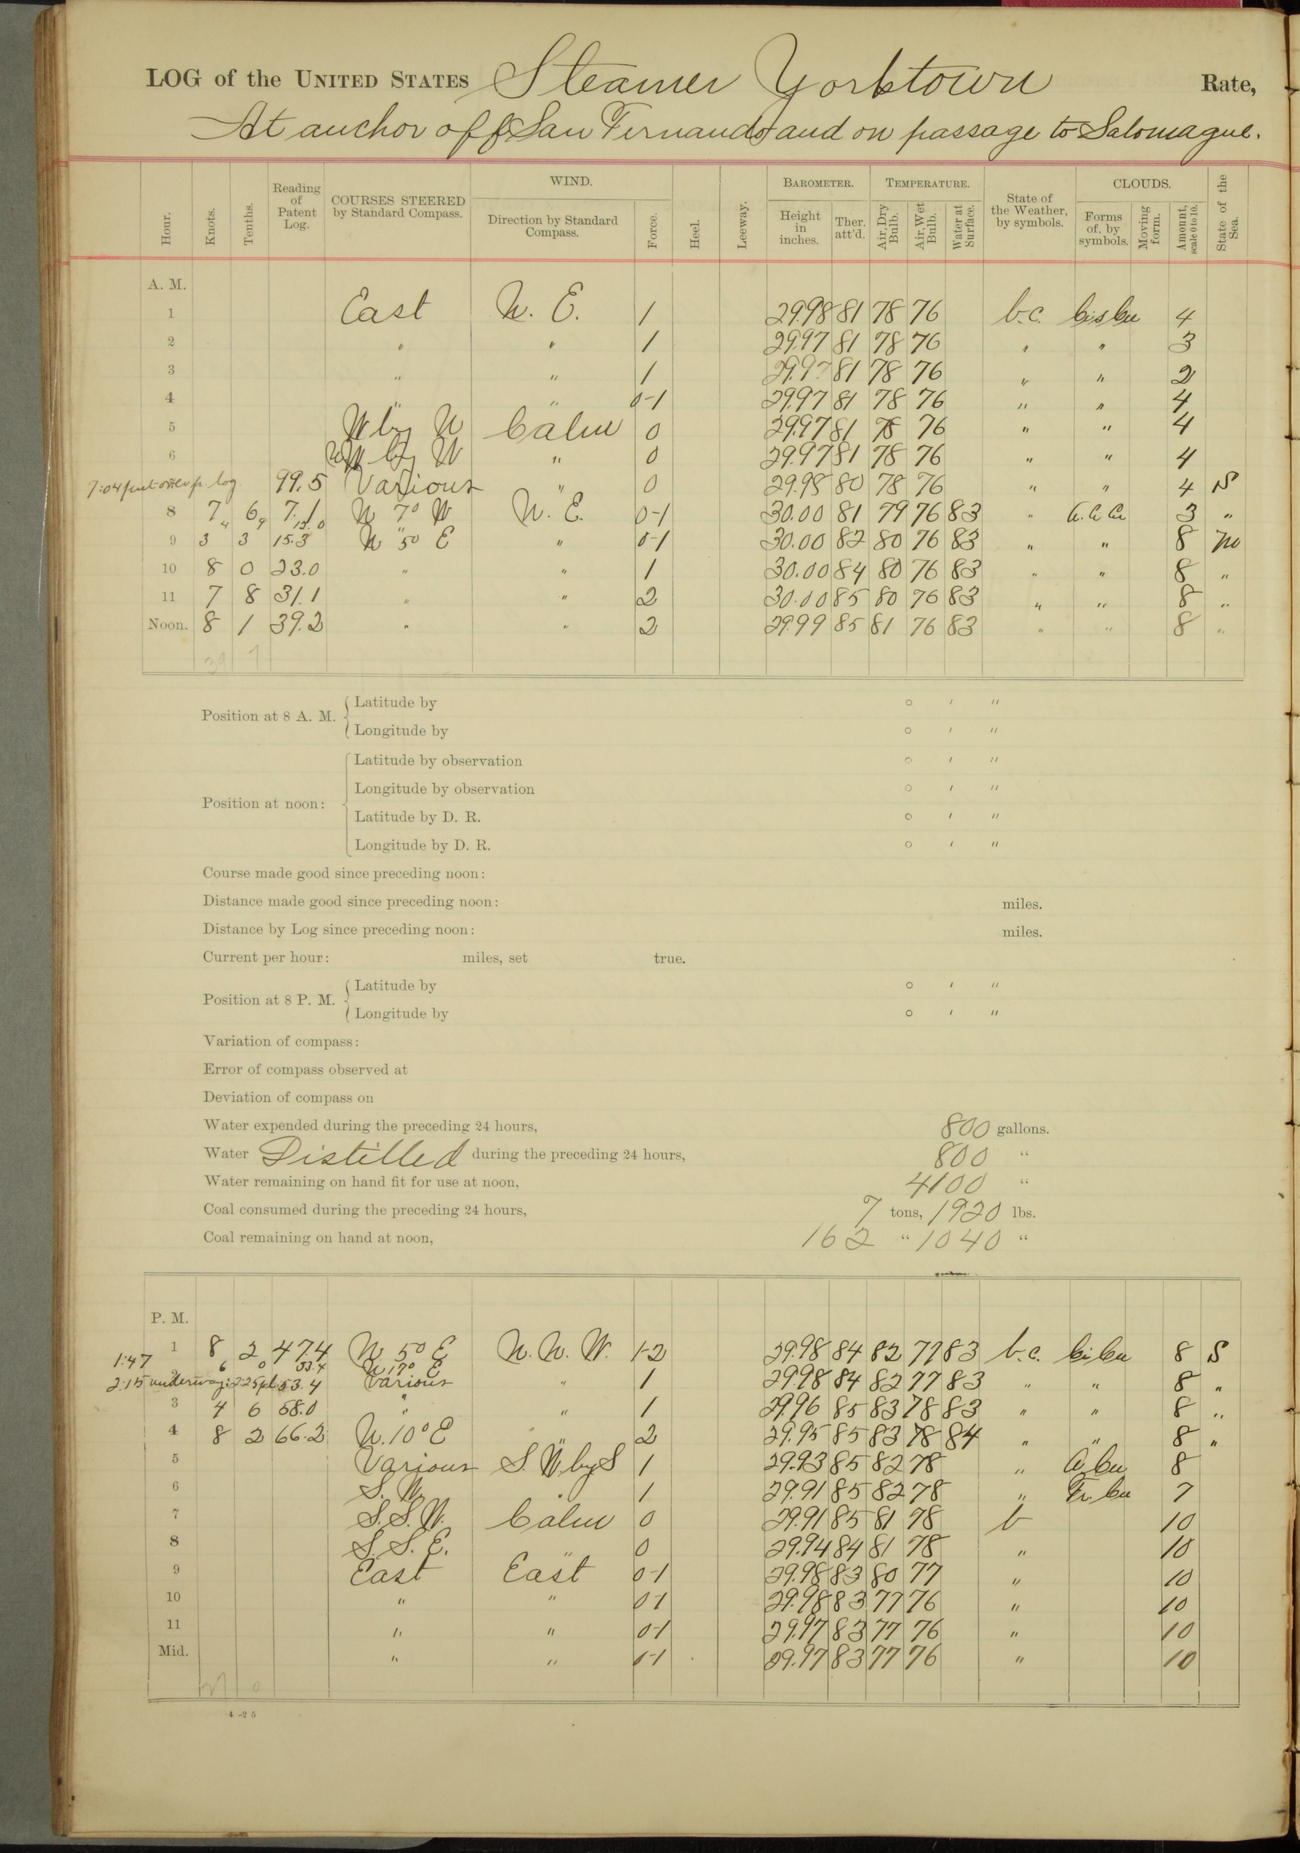 LOG of the UNITED STATES Steamer Yorktown Rate,
At anchor off San Fernando and on passage to Salomague.
Hour. Knots. Tenths. Reading of Patent Log. COURSES STEERED by Standard Compass. WIND. Direction by Standard Compass. Force. Heel. Leeway. BAROMETER. Height in inches. Ther. att'd. TEMPERATURE. Air, Dry Bulb. Air, Wet Bulb. Water at Surface. State of the Weather, by symbols. CLOUDS. Forms of, by symbols. Moving form. Amount, scale 0 to 10. State of the Sea.
A. M.
1 East N. E. 1 29.98 81 78 76 b.c. 4
2 " " 1 29.97 81 78 76 " " 3
3 " " 1 29.97 81 78 76 " " 2
4 " " 0-1 29.97 81 78 76 " " 4
5 W by N Calm 0 29.97 81 78 76 " " 4
6 W by N " 0 29.97 81 78 76 " " 4
7:04 put over p. log 99.5 Various " 0 29.98 80 78 76 " " 4 S
8 7 6 7.1 N 7° W N. E. 0-1 30.00 81 79 76 83 " 3 "
4 9 12.0
9 3 3 15.3 N 50 E " 0-1 30.00 82 80 76 83 " " 8
10 8 0 23.0 " " 1 30.00 84 80 76 83 " " 8 "
11 7 8 31.1 " " 2 30.00 85 80 76 83 " " 8 "
Noon. 8 1 39.2 " " 2 29.99 85 81 76 83 " " 8 "
39 7
Position at 8 A. M. Latitude by ° ′ ″
Longitude by ° ′ ″
Position at noon: Latitude by observation ° ′ ″
Longitude by observation ° ′ ″
Latitude by D. R. ° ′ ″
Longitude by D. R. ° ′ ″
Course made good since preceding noon:
Distance made good since preceding noon: miles.
Distance by Log since preceding noon: miles.
Current per hour: miles, set true.
Position at 8 P. M. Latitude by ° ′ ″
Longitude by ° ′ ″
Variation of compass:
Error of compass observed at
Deviation of compass on
Water expended during the preceding 24 hours, 800 gallons.
Water Distilled during the preceding 24 hours, 800 "
Water remaining on hand fit for use at noon, 4100 "
Coal consumed during the preceding 24 hours, 7 tons, 1920 lbs.
Coal remaining on hand at noon, 162 " 1040 "
P. M.
1 8 2 47.4 N 50 E N. N. W. 1-2 29.98 84 82 77 83 b.c. Ci.Cu 8 S
1:47 6 0 53.4 N 17° E
2:15 underway: 2:25 pl 53.4 Various " 1 29.98 84 82 77 83 " " 8 "
3 4 6 58.0 " " 1 29.96 85 83 78 83 " " 8 "
4 8 2 66.2 N. 10° E " 2 29.95 85 83 78 84 " " 8 "
5 Various S. W by S 1 29.93 85 82 78 " 8
6 S. W. 1 29.91 85 82 78 " Fr. Cu 7
7 S. S. W. Calm 0 29.91 85 81 78 b 10
8 S. S. E. " 0 29.94 84 81 78 " 10
9 East East 0-1 29.98 83 80 77 " 10
10 " " 0-1 29.98 83 77 76 " 10
11 " " 0-1 29.97 83 77 76 " 10
Mid. " " 0-1 29.97 83 77 76 " 10
27 0
4-25